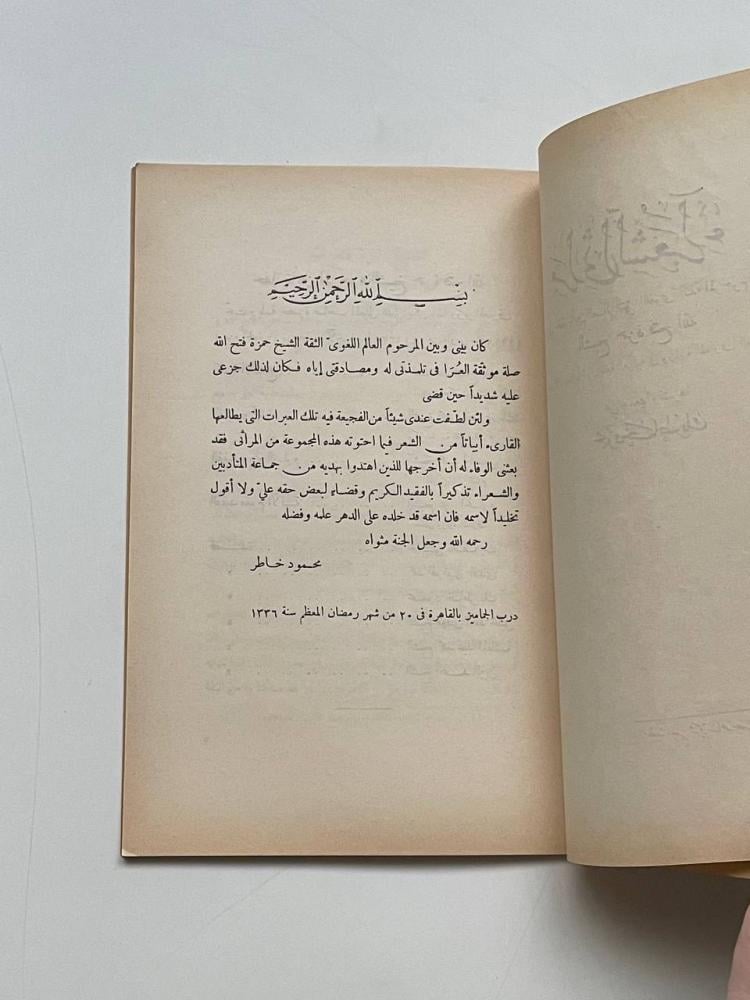 بسم الله الرحمن الرحيم
كان بينى وبين المرحوم العالم اللغوىّ الثقة الشيخ حمزة فتح الله
صلة موثقة العُرَا فى تلمذتى له ومصادقتى إياه فكان لذلك جزعى
عليه شديداً حين قضى
ولئن لطّفت عندى شيئاً من الفجيعة فيه تلك العبرات التى يطالعها
القارىء أبياتاً من الشعر فيما احتوته هذه المجموعة من المرائى فقد
بعثنى الوفاء له أن أخرجها للذين اهتدوا بهديه من جماعة المتأدبين
والشعراء تذكيراً بالفقيد الكريم وقضاء لبعض حقه علىّ ولا أقول
تخليداً لاسمه فان اسمه قد خلده على الدهر علمه وفضله
رحمه الله وجعل الجنة مثواه
محمود خاطر
درب الجماميز بالقاهرة فى ٢٠ من شهر رمضان المعظم سنة ١٣٣٦